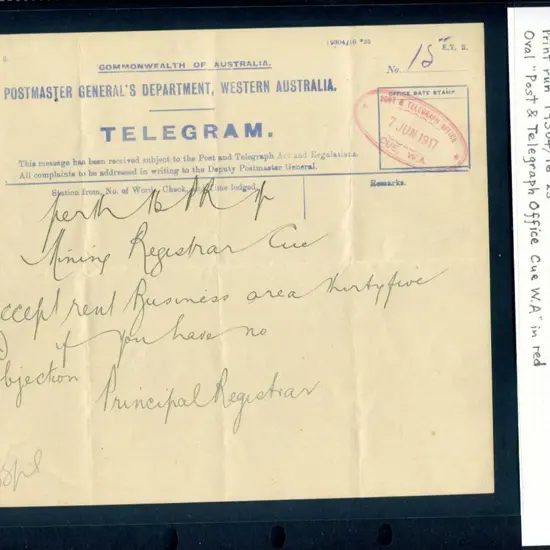 S.
COMMONWEALTH OF AUSTRALIA.
No. 15 E.T. 2.
POSTMASTER GENERAL'S DEPARTMENT, WESTERN AUSTRALIA.
OFFICE DATE STAMP
POST & TELEGRAPH OFFICE
7 JUN 1917
CUE W.A.
TELEGRAM.
This message has been received subject to the Post and Telegraph Act and Regulations.
All complaints to be addressed in writing to the Deputy Postmaster General.
Station from, No. of Words, Check, and Time lodged.
Remarks.
Perth
Mining Registrar Cue
ccept rent Business area thirtyfive
if you have no
bjection
Principal Registrar
Print run
Oval "Post & Telegraph Office Cue W.A" in red